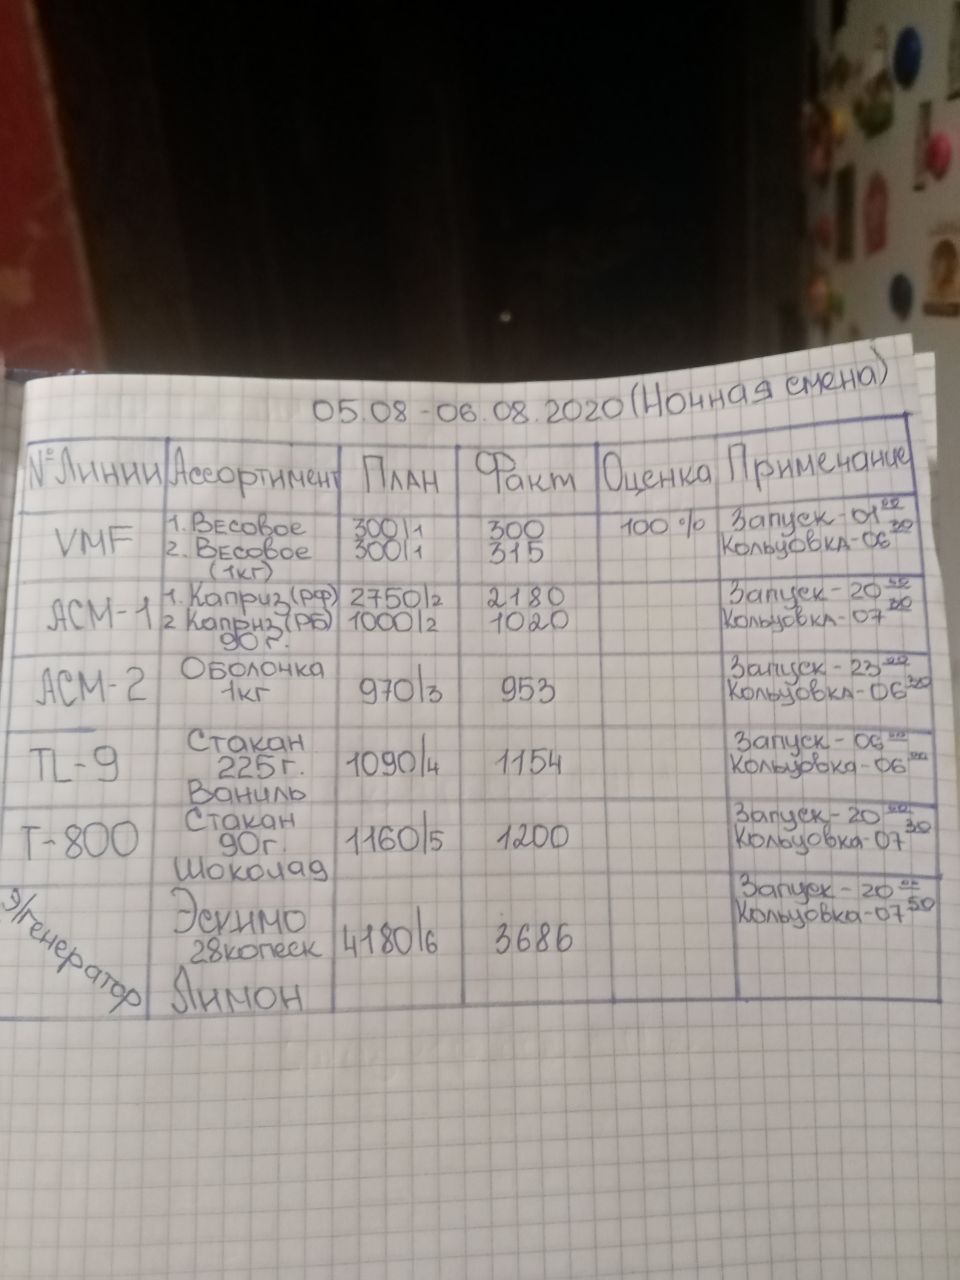 05.08-06.08.2020 (Ночная смена)
№Линии Ассортимент План Факт Оценка Примечание
VMF 1. Весовое 300/1 300 100% Запуск-01 00
2. Весовое 300/1 315 Кольцовка-06 30
(1кг)
АСМ-1 1. Каприз(РФ) 2750/2 2180 Запуск-20 00
2 Каприз(РБ) 1000/2 1020 Кольцовка-07
90г.
АСМ-2 Оболочка 970/3 953 Запуск-23 00
1кг Кольцовка-06 30
TL-9 Стакан 1090/4 1154 Запуск-06
225г. Кольцовка-06 00
Ваниль
Т-800 Стакан 1160/5 1200 Запуск-20 00
90г. Кольцовка-07 30
Шоколад
Э/генератор Эскимо 4180/6 3686 Запуск-20 00
28копеек Кольцовка-07 50
Лимон